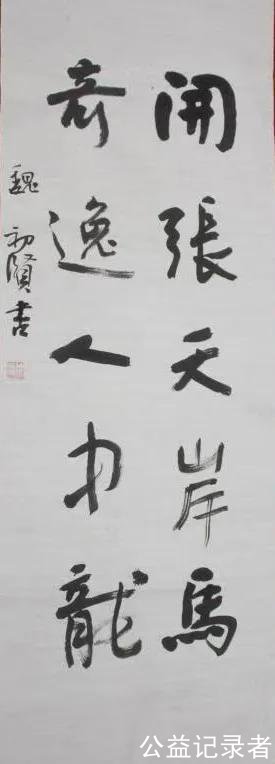 開張天岸馬
奇逸人中龍
魏初賢書
公益记录者